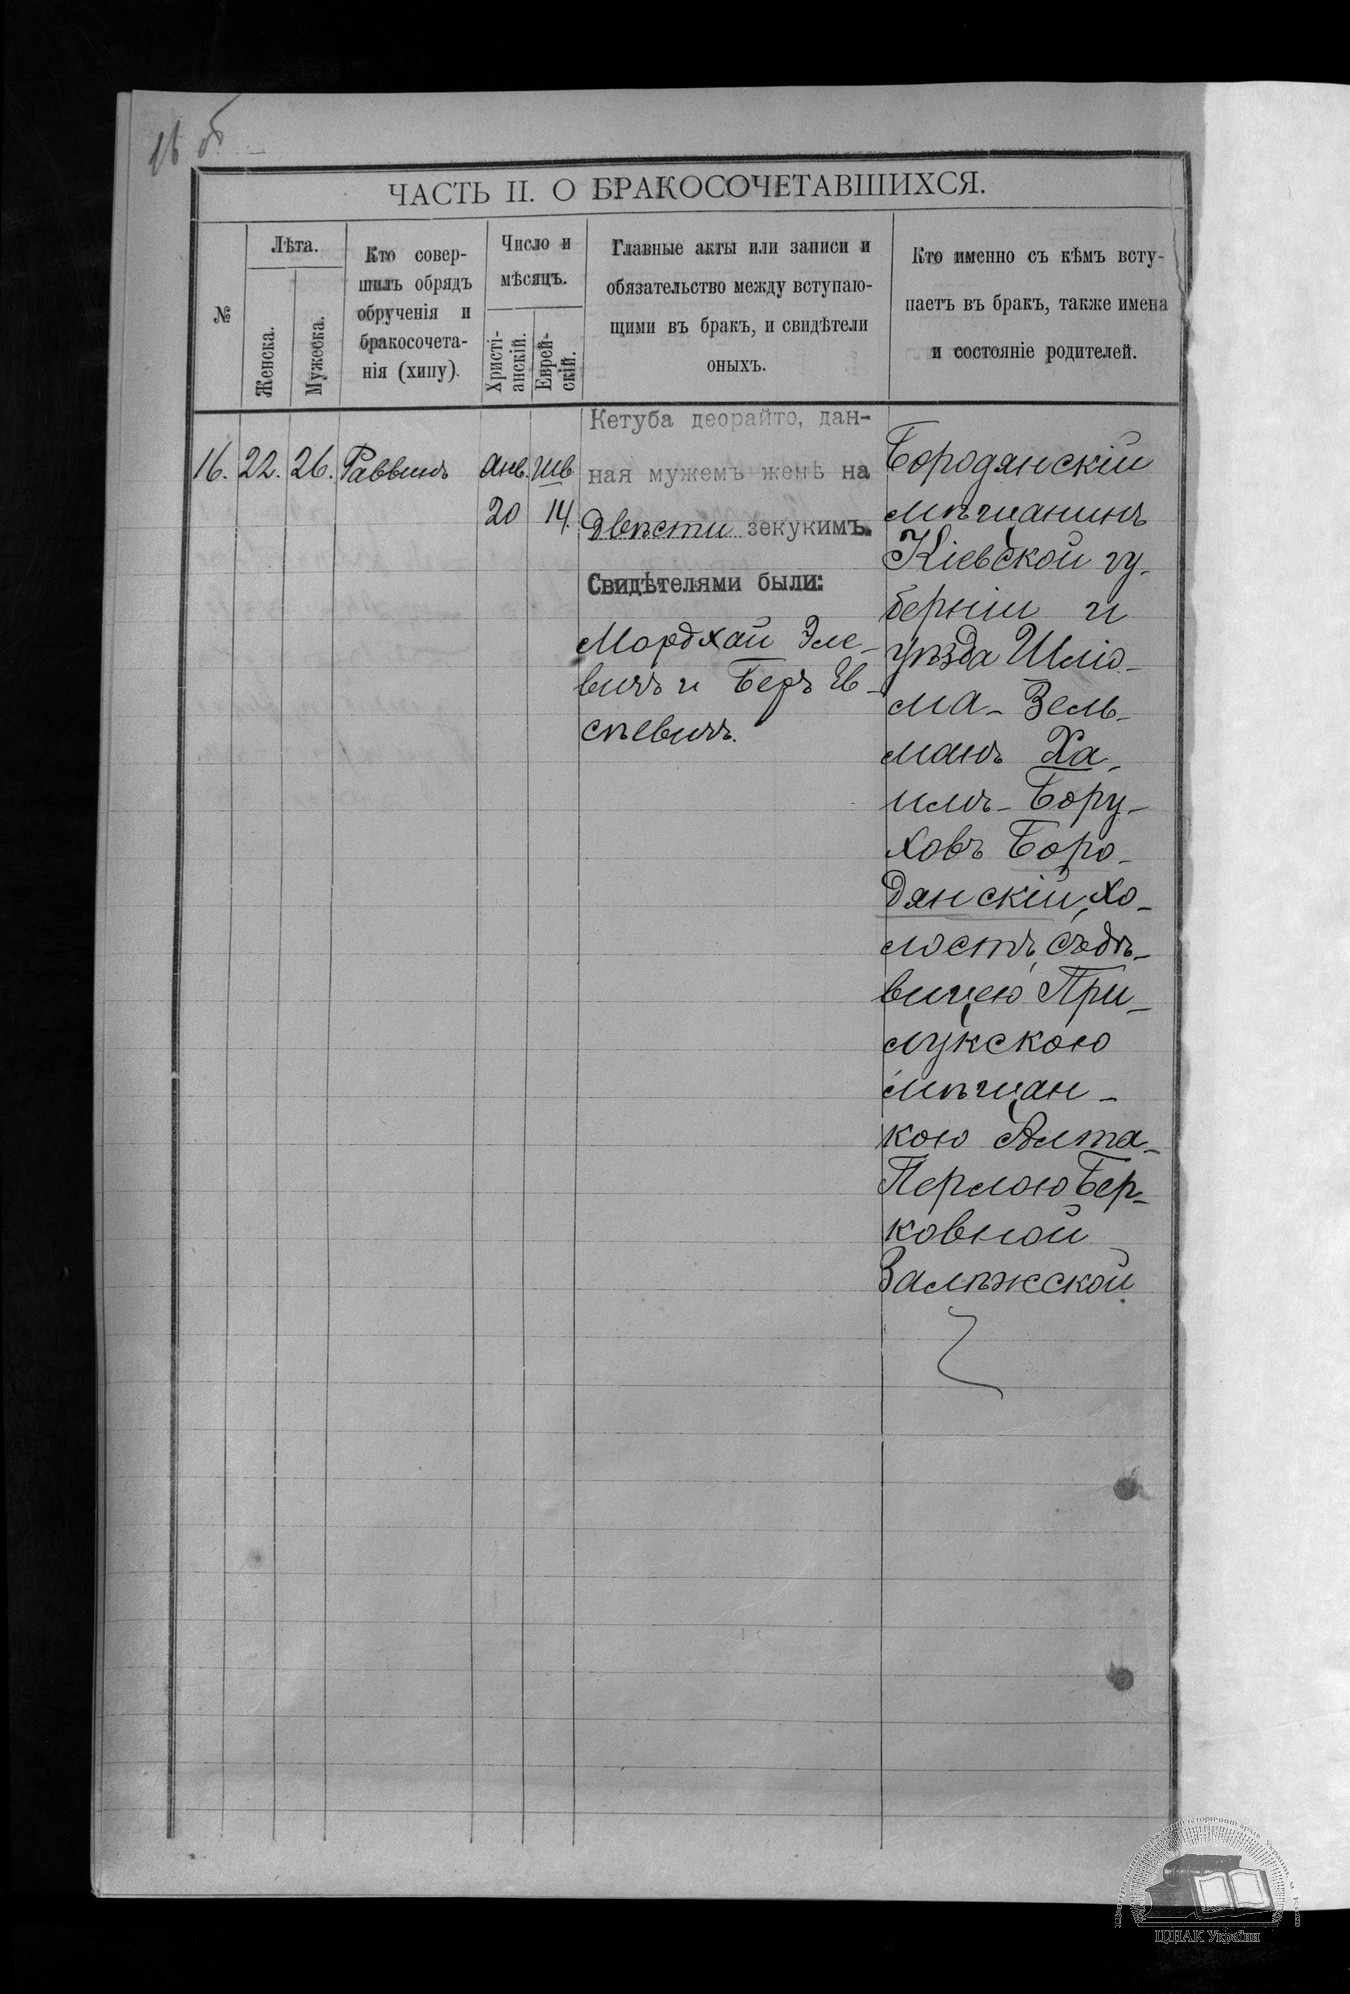 16 об
ЧАСТЬ II. О БРАКОСОЧЕТАВШИХСЯ.
№
Лѣта.
Женска.
Мужеска.
Кто совер-
шилъ обрядъ
обрученія и
бракосочета-
нія (хипу).
Число и
мѣсяцъ.
Христі-
анскій.
Еврей-
скій.
Главные акты или записи и
обязательство между вступаю-
щими въ бракъ, и свидѣтели
оныхъ.
Кто именно съ кѣмъ всту-
паетъ въ бракъ, также имена
и состояніе родителей.
16. 22. 26. Раввинъ Янв. Шв
20 14.
Кетуба деорайто, дан-
ная мужемъ женѣ на
Двѣсти зекукимъ.
Свидѣтелями были:
Мордхай Эле-
вичъ и Беръ Ев-
сѣевичъ.
Бородянскій
мѣщанинъ
Кіевской гу-
берніи и
уѣзда Шліо-
ма-Зель-
манъ Ха-
имъ-Бору-
ховъ Боро-
дянскій, хо-
лостъ, съ дѣ-
вицею При-
лукскою
мѣщан-
кою Алта-
Перлою Бер-
ковной
Залѣжской
ЦДІАК України